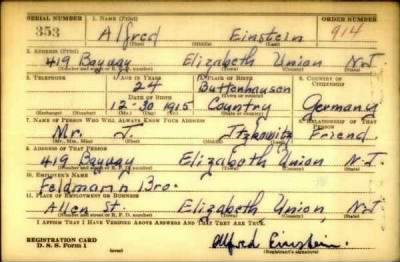 SERIAL NUMBER 1. NAME (Print) ORDER NUMBER
353 Alfred Einstein 914
(First) (Middle) (Last)
2. ADDRESS (Print)
419 Bayway Elizabeth Union N.J.
(Number and street or R. F. D. number) (Town) (County) (State)
3. TELEPHONE 4. AGE IN YEARS 5. PLACE OF BIRTH 6. COUNTRY OF CITIZENSHIP
24 Buttenhausen
DATE OF BIRTH (Town or county)
12-30 1915 Country Germany
(Exchange) (Number) (Mo.) (Day) (Yr.) (State or country)
7. NAME OF PERSON WHO WILL ALWAYS KNOW YOUR ADDRESS 8. RELATIONSHIP OF THAT PERSON
Mr. J. Itzkowitz Friend
(Mr., Mrs., Miss) (First) (Middle) (Last)
9. ADDRESS OF THAT PERSON
419 Bayway Elizabeth Union N.J.
(Number and street or R. F. D. number) (Town) (County) (State)
10. EMPLOYER'S NAME
Feldmann Bro.
11. PLACE OF EMPLOYMENT OR BUSINESS
Allen St. Elizabeth Union N.J.
(Number and street or R. F. D. number) (Town) (County) (State)
I AFFIRM THAT I HAVE VERIFIED ABOVE ANSWERS AND THAT THEY ARE TRUE.
REGISTRATION CARD
D. S. S. Form 1 (over) Alfred Einstein.